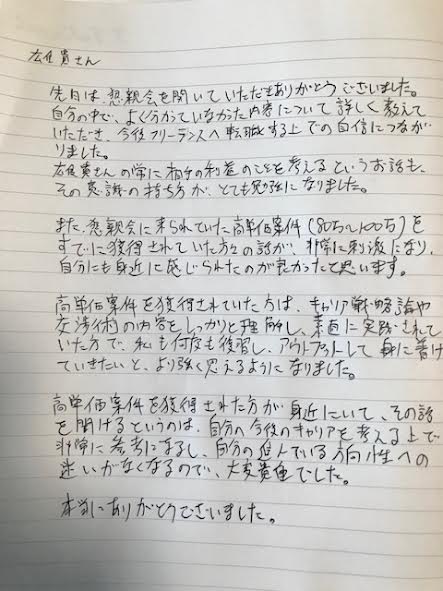 佐貴さん
先日は懇親会を開いていただきありがとうございました。
自分の中で、よく分かっていなかった内容について詳しく教えて
いただき、今後フリーランスへ転職する上での自信につなが
りました。
貴さんの常に相手の利益のことを考えるというお話も、
その意識の持ち方が、とても勉強になりました。
また、懇親会に来られていた高単価案件(80万~100万)を
すでに獲得されていた方々の話が、非常に刺激になり、
自分にも身近に感じられたのが良かったと思います。
高単価案件を獲得されていた方は、キャリア戦略論や
交渉術の内容をしっかりと理解し、素直に実践されて
いた方で、私も何度も復習し、アウトプットして身に着け
ていきたいと、より強く思えるようになりました。
高単価案件を獲得された方が身近にいて、その話
を聞けるというのは、自分の今後のキャリアを考える上で
非常に参考になるし、自分の進んでいる方向性への
迷いがなくなるので、大変貴重でした。
本当にありがとうございました。